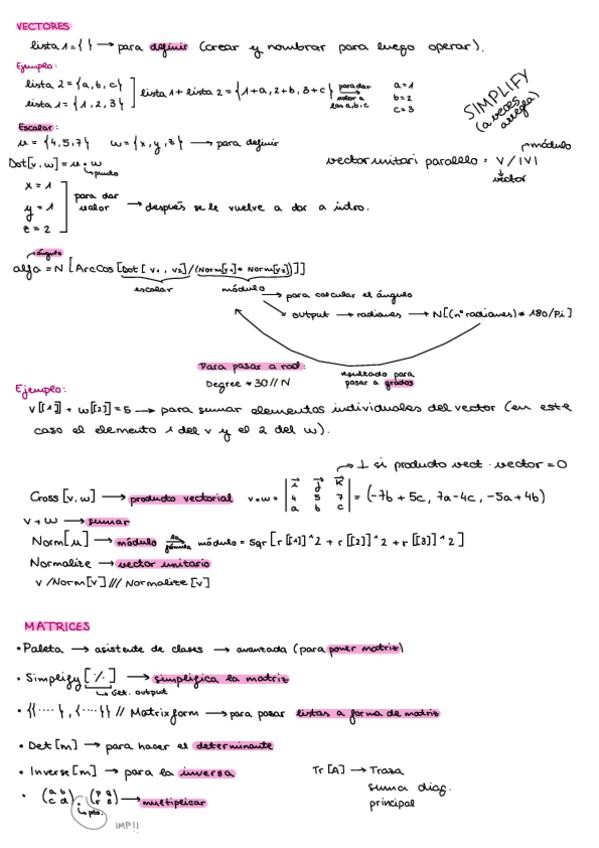 VECTORES
lista 1 = { } → para definir (crear y nombrar para luego operar).
Ejemplo:
lista 2 = {a, b, c}
lista 1 = {1, 2, 3}
lista 1 + lista 2 = {1+a, 2+b, 3+c} para dar valor a las a, b, c
a=1
b=2
c=3
SIMPLIFY
(a veces arregla)
Escalar:
u = {4,5,7} w = {x, y, z} → para definir
Dot[v, w] = u · w
punto
x = 1
y = 1
z = 2
para dar valor → después se le vuelve a dar a intro.
vector unitari paralelo = v / |v|
módulo
vector
ángulo
alfa = N [ArcCos [Dot [v1, v2]/(Norm[v1] * Norm[v2])]]
escalar
módulo
→ para calcular el ángulo
→ output → radianes → N[(nº radianes) * 180/Pi]
Para pasar a rad:
Degree * 30 // N
resultado para pasar a grados
Ejemplo:
v[[1]] + w[[2]] = 5 → para sumar elementos individuales del vector (en este
caso el elemento 1 del v y el 2 del w).
⊥ si producto vect · vector = 0
Cross [v, w] → producto vectorial v × w = | i j k | 4 5 7 | a b c | = (-7b + 5c, 7a - 4c, -5a + 4b)
v + w → sumar
Norm[u] → módulo la fórmula módulo = Sqr [r [[1]]^2 + r [[2]]^2 + r [[3]]^2]
Normalize → vector unitario
v /Norm[v] /// Normalize [v]
MATRICES
• Paleta → asistente de clases → avanzada (para poner matriz)
• Simplify [%] → simplifica la matriz
Get. output
• {{····}, {····}} // Matrixform → para pasar listas a forma de matriz
• Det [m] → para hacer el determinante
• Inverse [m] → para la inversa
Tr [A] → Traza
suma diag.
principal
• (a b c d) · (p q r s) → multiplicar
pto.
IMP!!